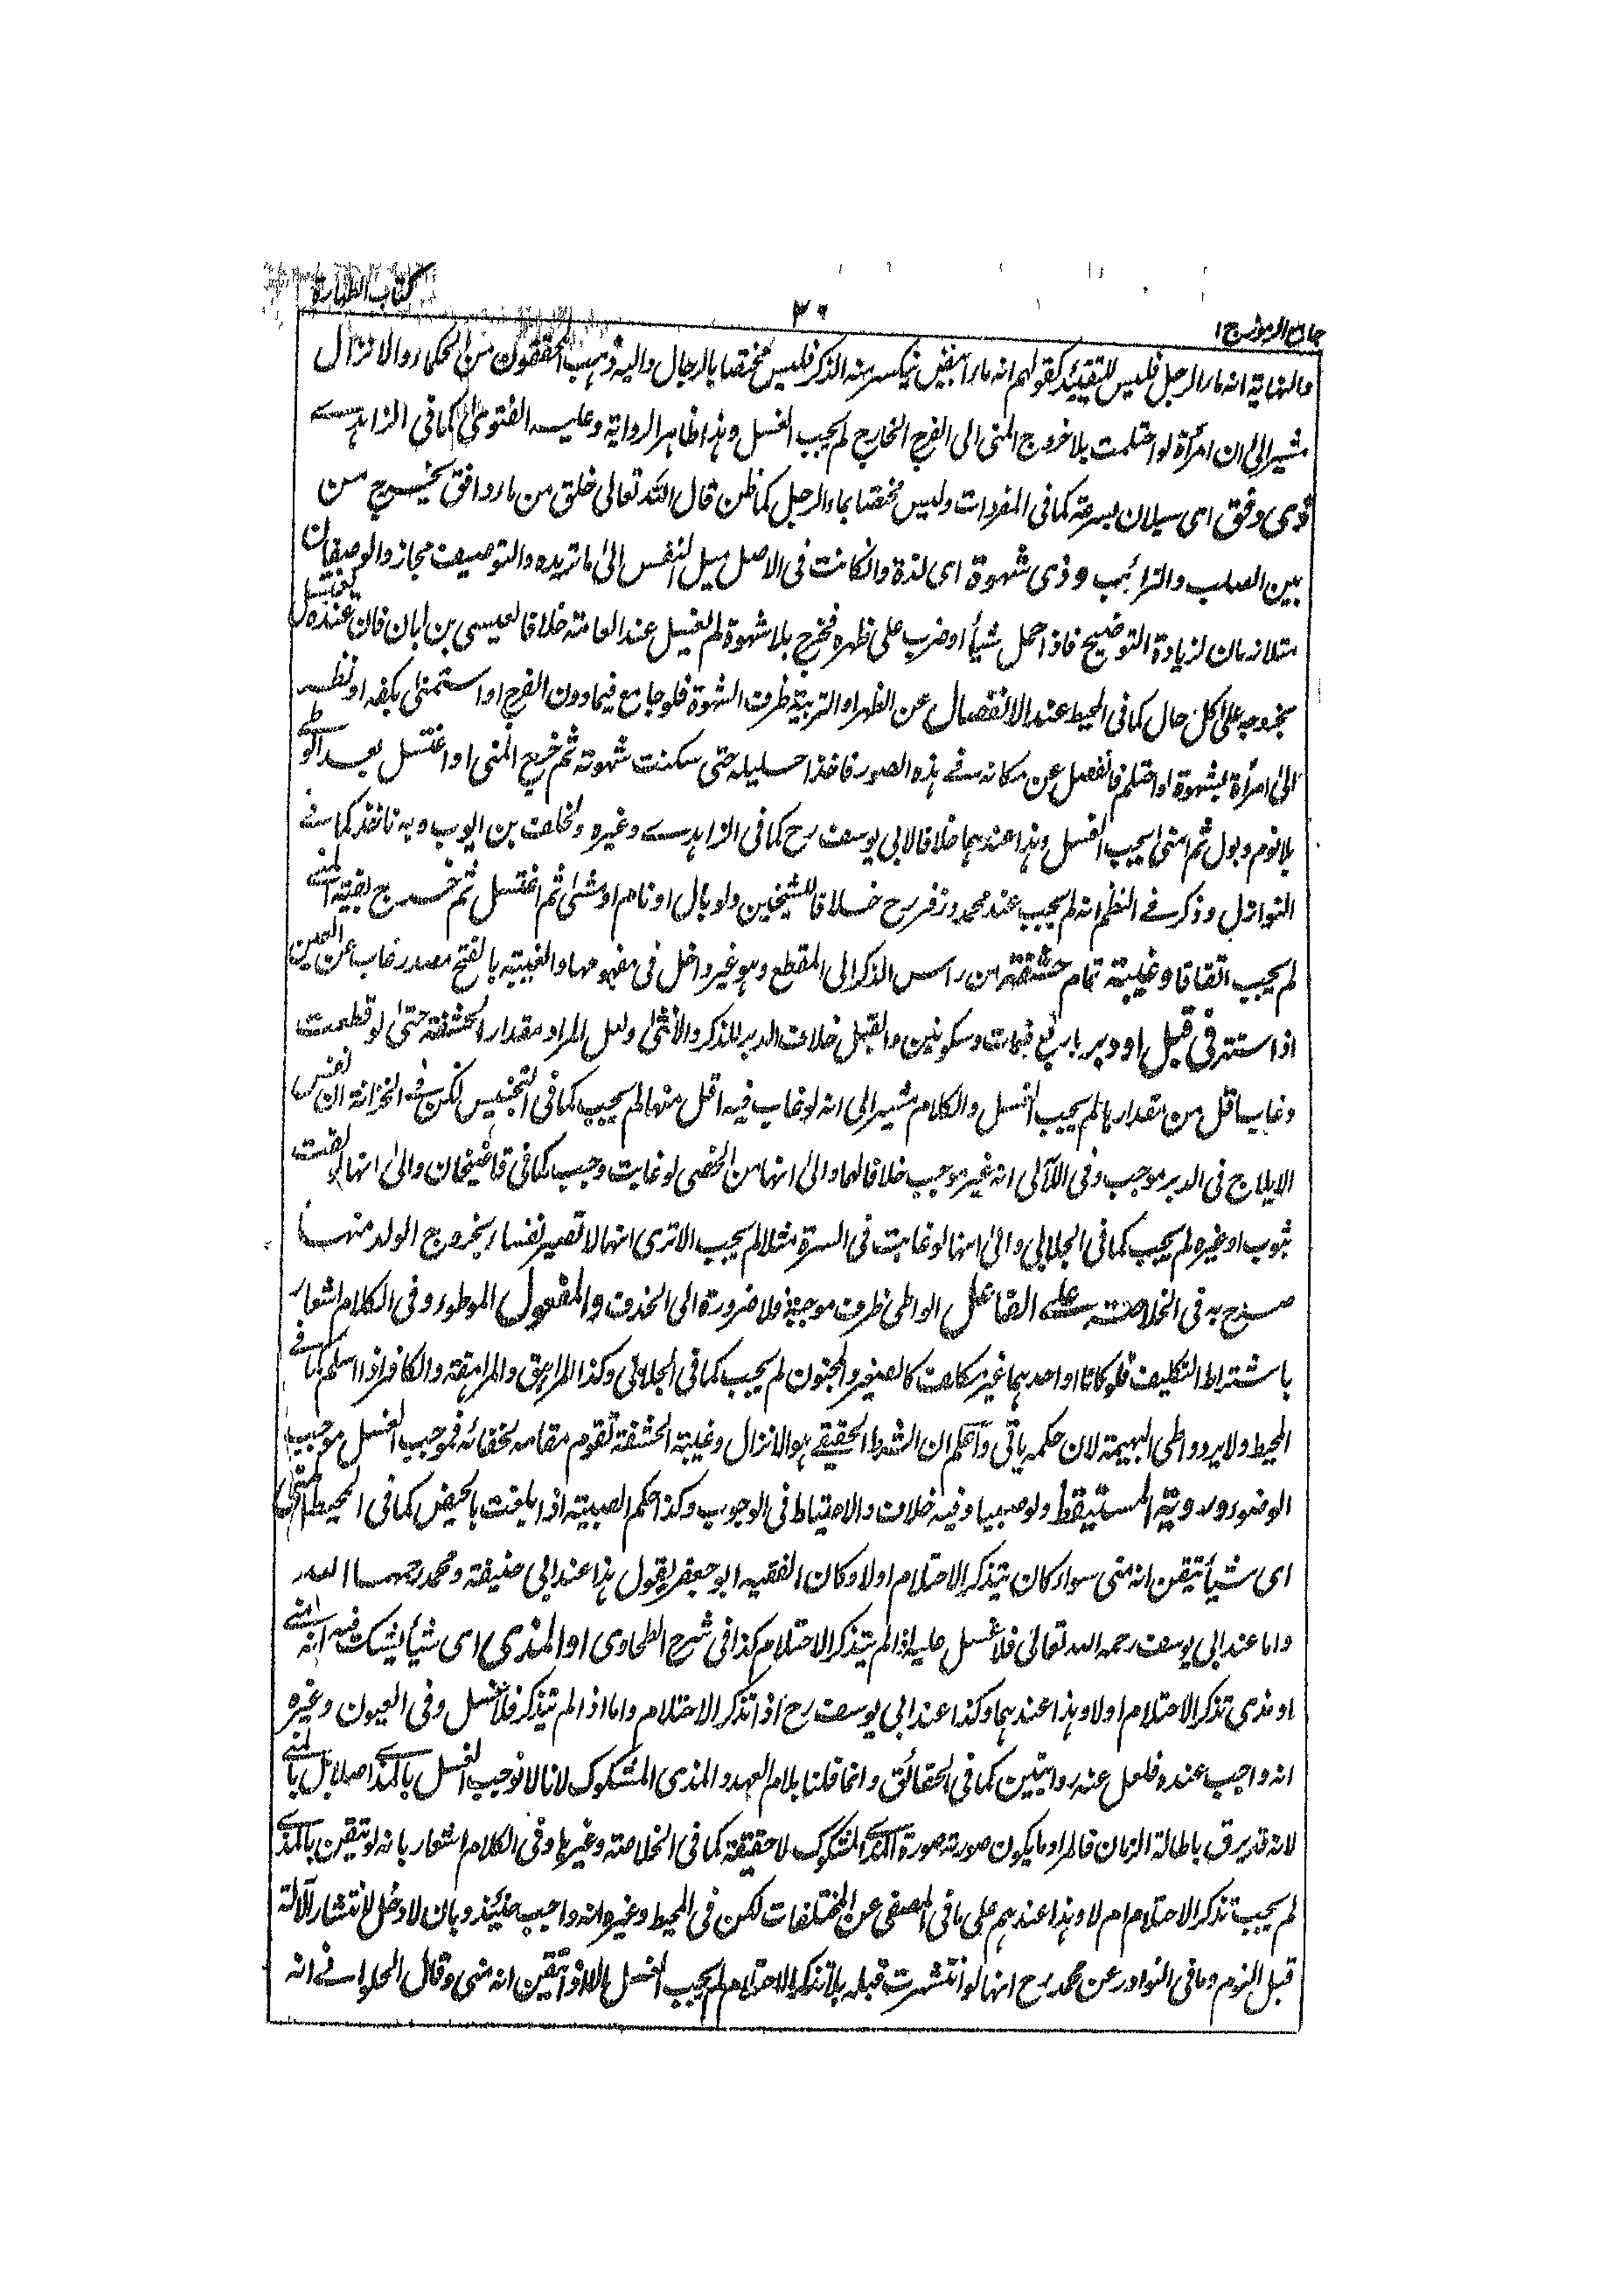 كتاب الطهارة
٣٠
جامع الرموز ج ١
والنهاية انه ماء الرجل فليس للتقييد كقولهم انه ماء ابيض ينكسر منه الذكر فليس مختصا بالرجال واليه ذهب المحققون من الحكماء والانزال
مشير الى ان امرأة لو احتلمت بلا خروج المنى الى الفرج الخارج لم يجب الغسل وهذا ظاهر الرواية وعليه الفتوى كما فى الزاهدے
ذى دفق اى سيلان بسرعة كما فى المفردات وليس مختصا بماء الرجل كما ظن قال الله تعالى خلق من ماء دافق يخرج من
بين الصلب والترائب وذى شهوة اى لذة وان كانت فى الاصل ميل النفس الى ما تريده والتوصيف مجاز والوصفان
متلازمان لزيادة التوضيح فاذا حمل شيأ او ضرب على ظهره فخرج بلا شهوة لم يغسل عند العامة خلافا لعيسى بن ابان فان عنده يغتسل
بخروجه على كل حال كما فى المحيط عند الانفصال عن الظهر او التربية ظرف الشهوة فلو جامع فيما دون الفرج او استمنى بكفه او نظر
الى امرأة بشهوة او احتلم فانفصل عن مكانه فے هذه الصور فاخذ احليله حتى سكنت شهوته ثم خرج المنى او اغتسل بعد الوطے
بلا نوم وبول ثم امنى يجب الغسل وهذا عندهما خلافا لابى يوسف رح كما فى الزاهدے وغيره وخلف بن ايوب وبه ناخذ كما فے
النوازل وذكر فے النظم انه لم يجب عند محمد وزفر رح خلافا للشيخين ولو بال او نام او مشى ثم اغتسل ثم خرج بقية المنے
لم يجب اتفاقا وغيبة تمام حشفة من راس الذكر الى المقطع وهو غير داخل فى مفهومها والغيبة بالفتح مصدر غاب عن العين
اذا استتر فى قبل او دبر باربع ضمات وسكونين والقبل خلاف الدبر للذكر والانثى ولعل المراد مقدار الحشفة حتى لو قطعت
وغاب اقل من مقدارها لم يجب الغسل والكلام مشير الى انه لو غاب فيه اقل منها لم يجب كما فى التجنيس لكن فے الخزانة ان نفس
الايلاج فى الدبر موجب وفى اللآلى انه غير موجب خلافا لهما والى انها من الخصى لو غابت وجب كما فى قاضيخان والى انها لو لفت
بثوب او غيره لم يجب كما فى الجلابى والى انها لو غابت فى السرة مثلا لم يجب الا ترى انها لا تصير نفساء بخروج الولد منها
صرح به فى الخلاصة على الفاعل الواطى ظرف موجبة ولا ضرورة الى الحذف والمفعول الموطوء وفى الكلام اشعار
باشتراط التكليف فلو كانا او احدهما غير مكلف كالصغير والمجنون لم يجب كما فى الجلابى وكذا المراهق والمراهقة والكافر اذا اسلم كما فے
المحيط ولا يرد وطى البهيمة لان حكمه باقى واعلم ان الشرط الحقيقے هو الانزال وغيبة الحشفة تقوم مقامه لخفائه فموجب الغسل موجب
الوضوء ورؤية المستيقظ ولو صبيا وفيه خلاف والاحتياط فى الوجوب وكذا حكم الصبية اذا بلغت بالحيض كما فى المحيط المنى
اى شيأ تيقن انه منى سواء كان يتذكر الاحتلام اولا وكان الفقيه ابو جعفر يقول هذا عند ابى حنيفة ومحمد رحمهما الله
واما عند ابى يوسف رحمه الله تعالى فلا غسل عليه اذا لم يتذكر الاحتلام كذا فى شرح الطحاوى او المذى اى شيأ يشك فيه انه منے
او مذى تذكر الاحتلام اولا وهذا عندهما وكذا عند ابى يوسف رح اذا تذكر الاحتلام واما اذا لم يتذكر فلا غسل وفى العيون وغيره
انه واجب عنده فلعل عنه روايتين كما فى الحقائق وانما قلنا بلام العهد والمذى المشكوك لانا لا نوجب الغسل بالمذے اصلا بل بالمنے
لانه قد يرق باطالة الزمان فالمراد ما يكون صورته صورة المذے المشكوك لا حقيقة كما فى الخلاصة وغيرها وفى الكلام اشعار بانه لو تيقن بالمذے
لم يجب تذكر الاحتلام ام لا وهذا عندهم على ما فى المصفى عن المختلفات لكن فى المحيط وغيره انه واجب حينئذ وبان لا دخل لانتشار الآلة
قبل النوم وما فى النوادر عن محمد رح انها لو انتشرت قبله بلا تذكر الاحتلام لم يجب الغسل الا اذا تيقن انه منى وقال الحلوانے انه